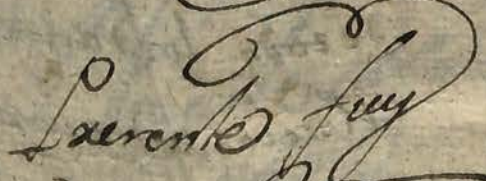 Laerente fuy